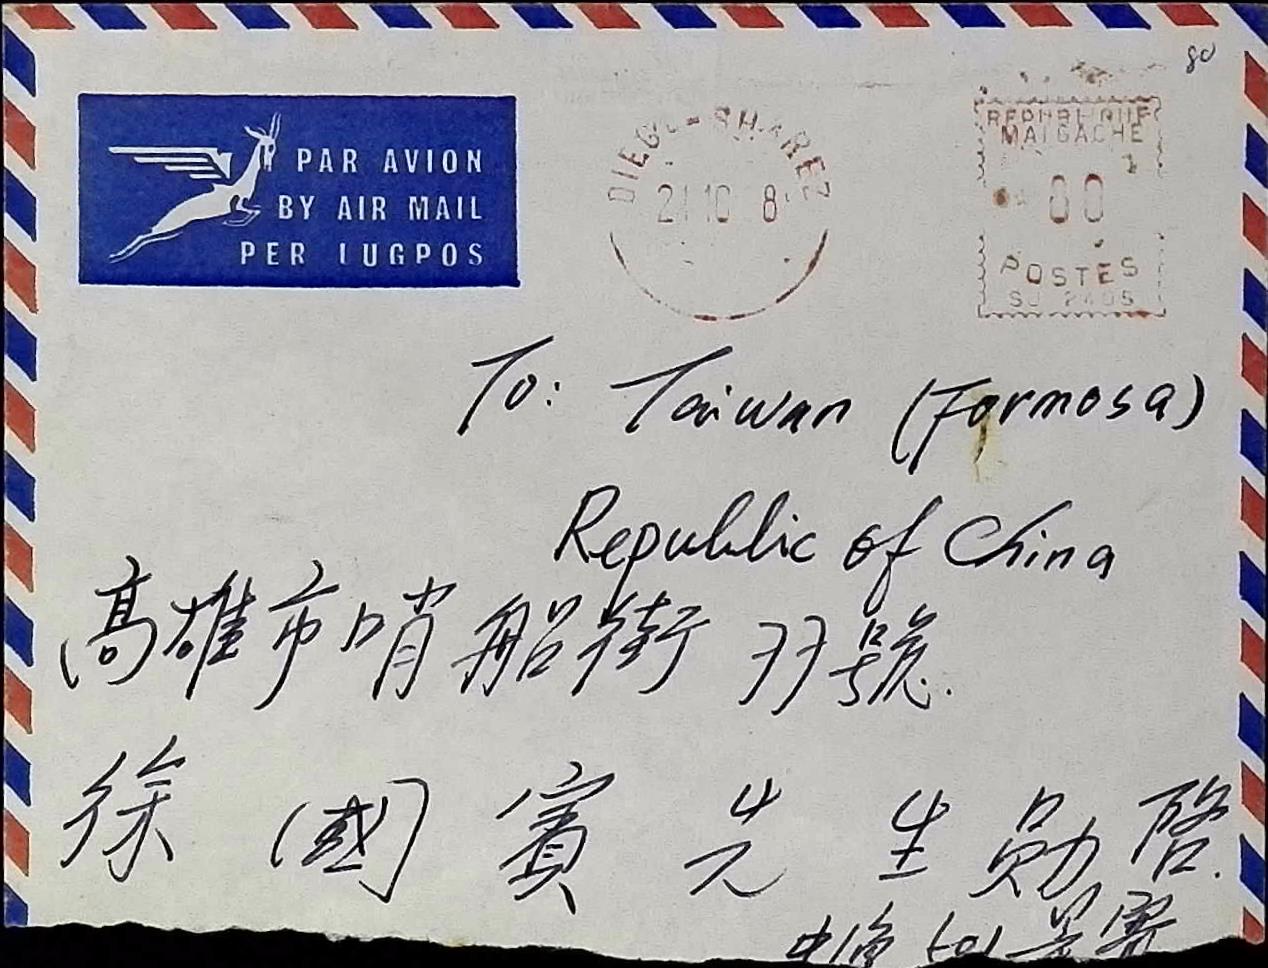 80
PAR AVION
BY AIR MAIL
PER LUGPOS
DIEGO-SUAREZ
21 10 8
REPUBLIQUE
MALGACHE
00
POSTES
SJ 2405
To: Taiwan (Formosa)
Republic of China
高雄市哨船街 77號.
徐國賓先生勛啓.